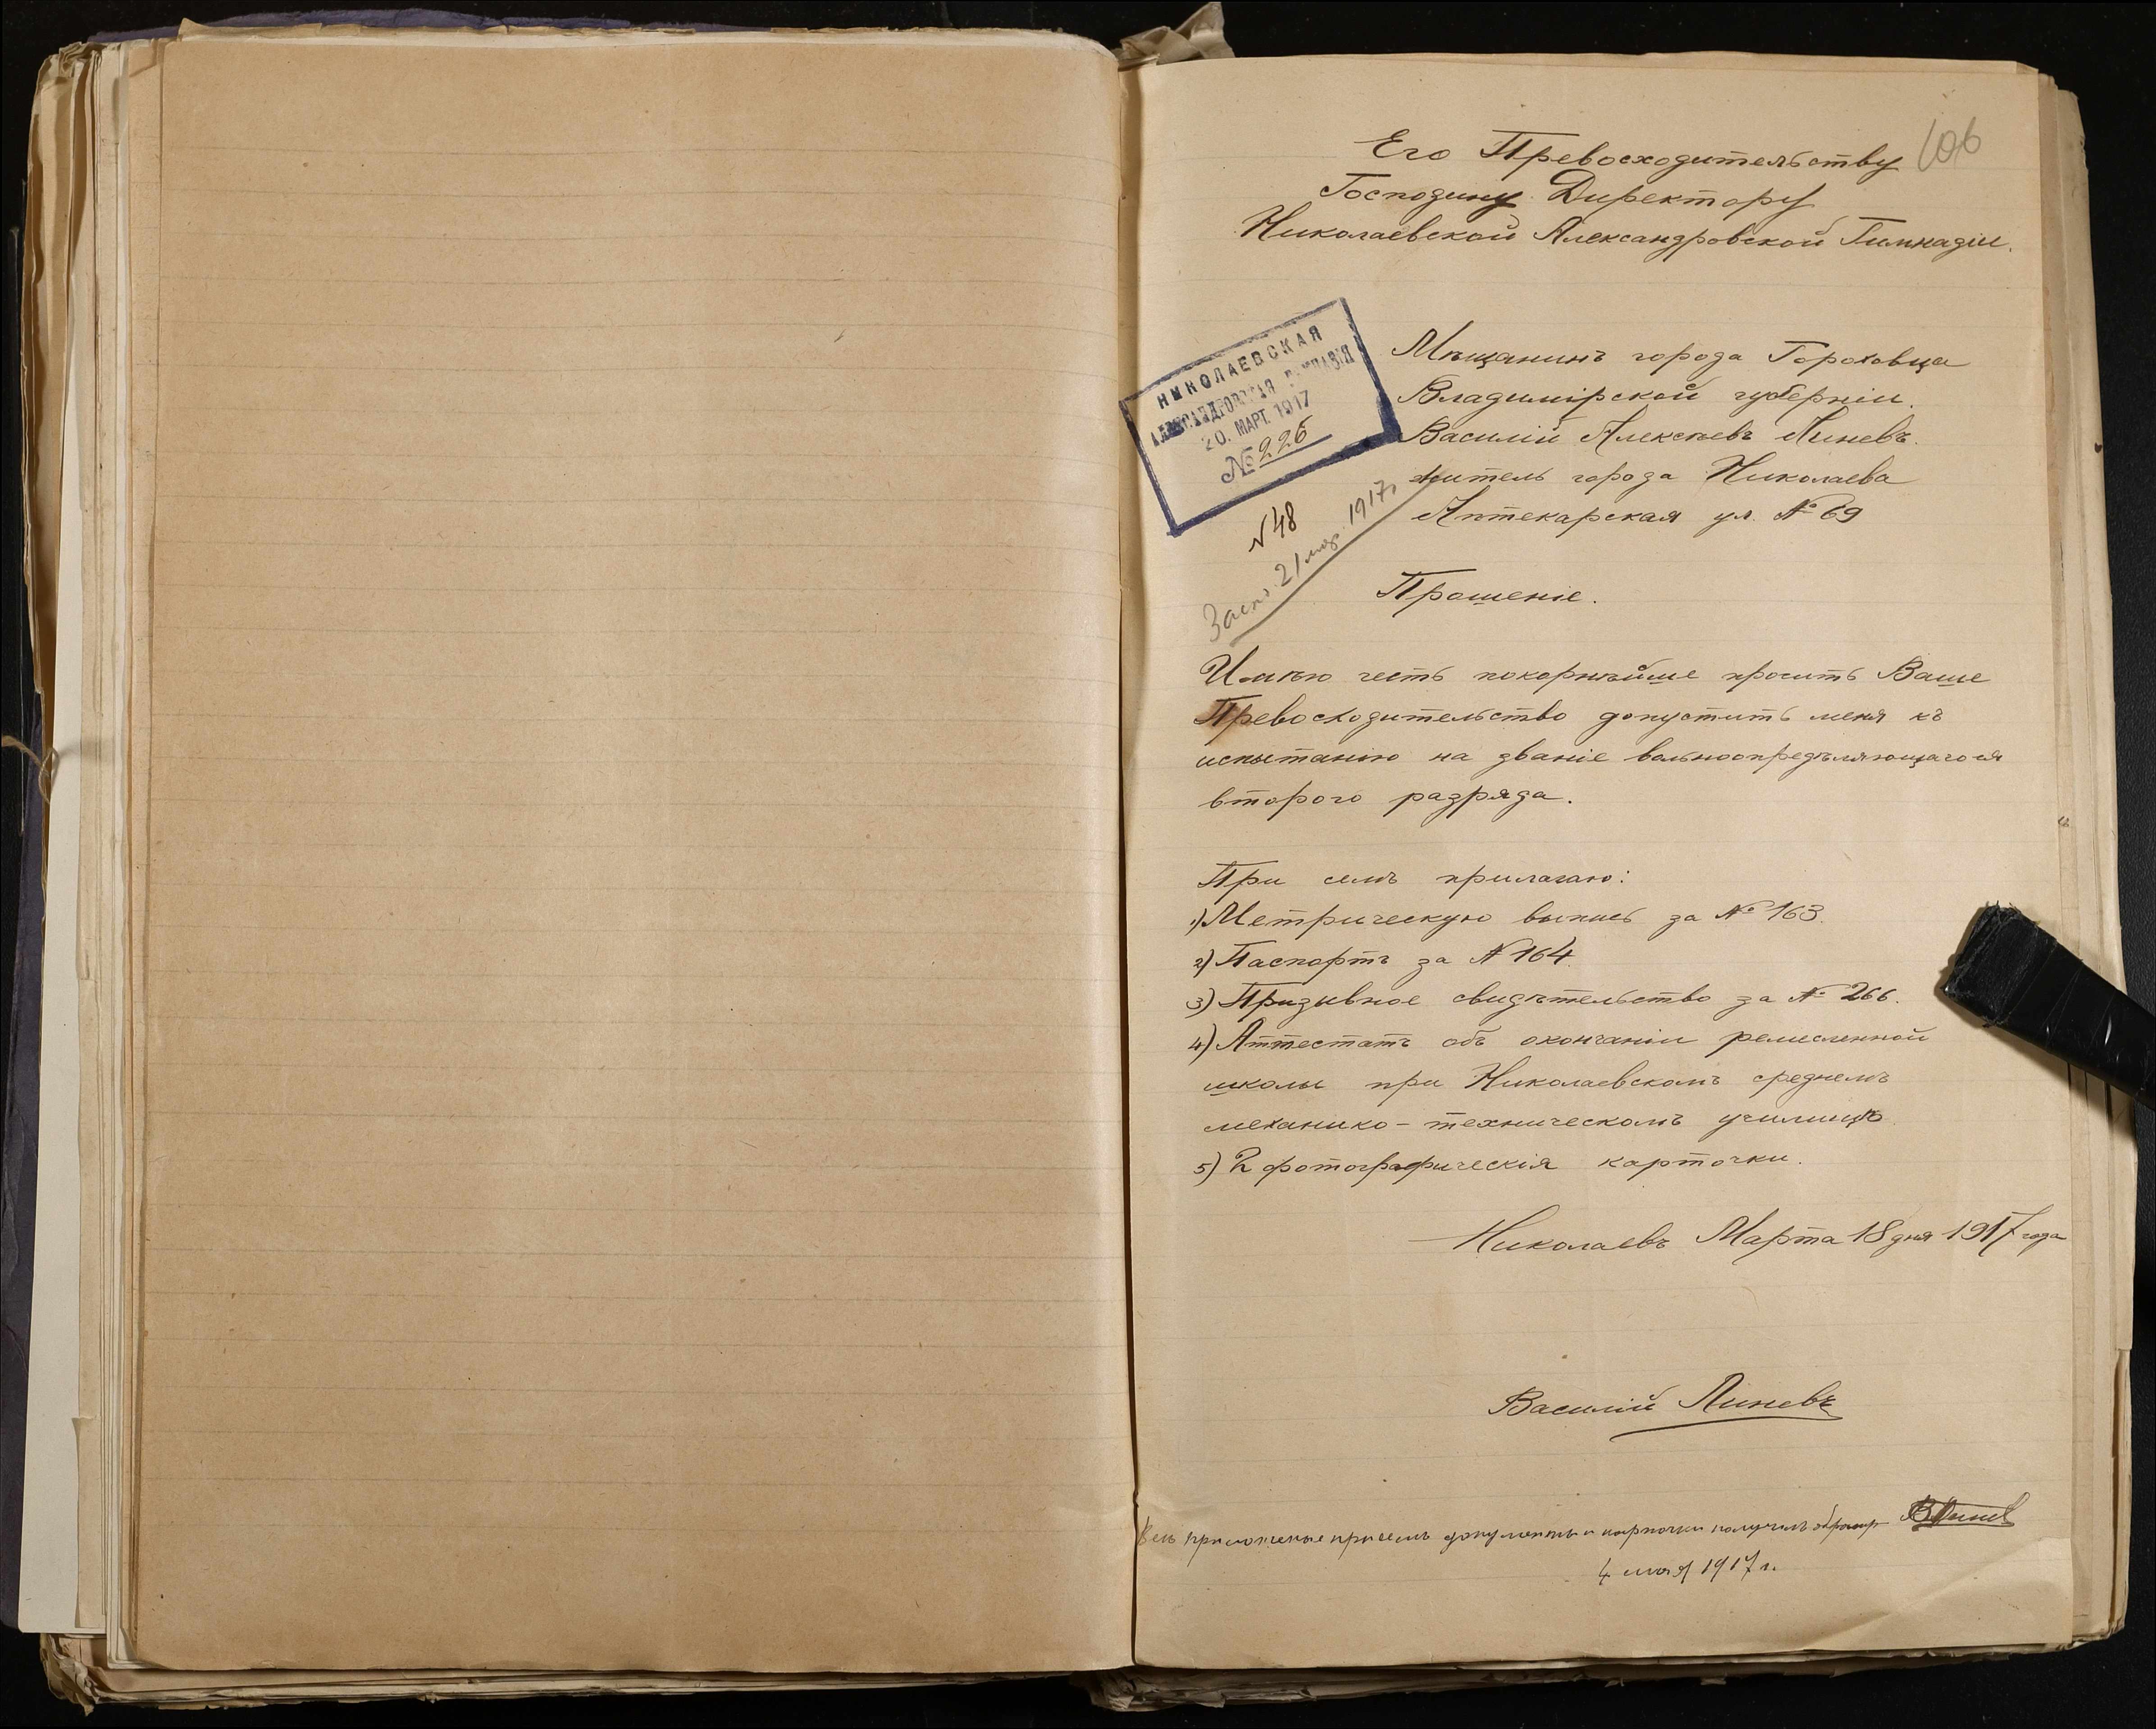 106
Его Превосходительству
Господину Директору
Николаевской Александровской Гимназіи.
НИКОЛАЕВСКАЯ
АЛЕКСАНДРОВСКАЯ ГИМНАЗІЯ
20. МАРТ. 1917
№ 226
№ 48
21 мар. 1917г
Мѣщанинъ города Гороховца
Владимірской губерніи.
Василій Алексѣевъ Линевъ.
житель города Николаева
Аптекарская ул. № 69
Прошеніе.
Имѣю честь покорнѣйше просить Ваше
Превосходительство допустить меня къ
испытанію на званіе вольноопредѣляющагося
второго разряда.
При семъ прилагаю:
1) Метрическую выпись за № 163.
2) Паспортъ за № 164.
3) Призывное свидѣтельство за № 266.
4) Аттестатъ объ окончаніи ремесленной
школы при Николаевскомъ среднемъ
механико-техническомъ училищѣ.
5) 2 фотографическія карточки.
Николаевъ Марта 18 дня 1917 года
Василій Линевъ
приложеные присемъ документы и карточки получилъ обратно ВЛинев
4 мая 1917 г.